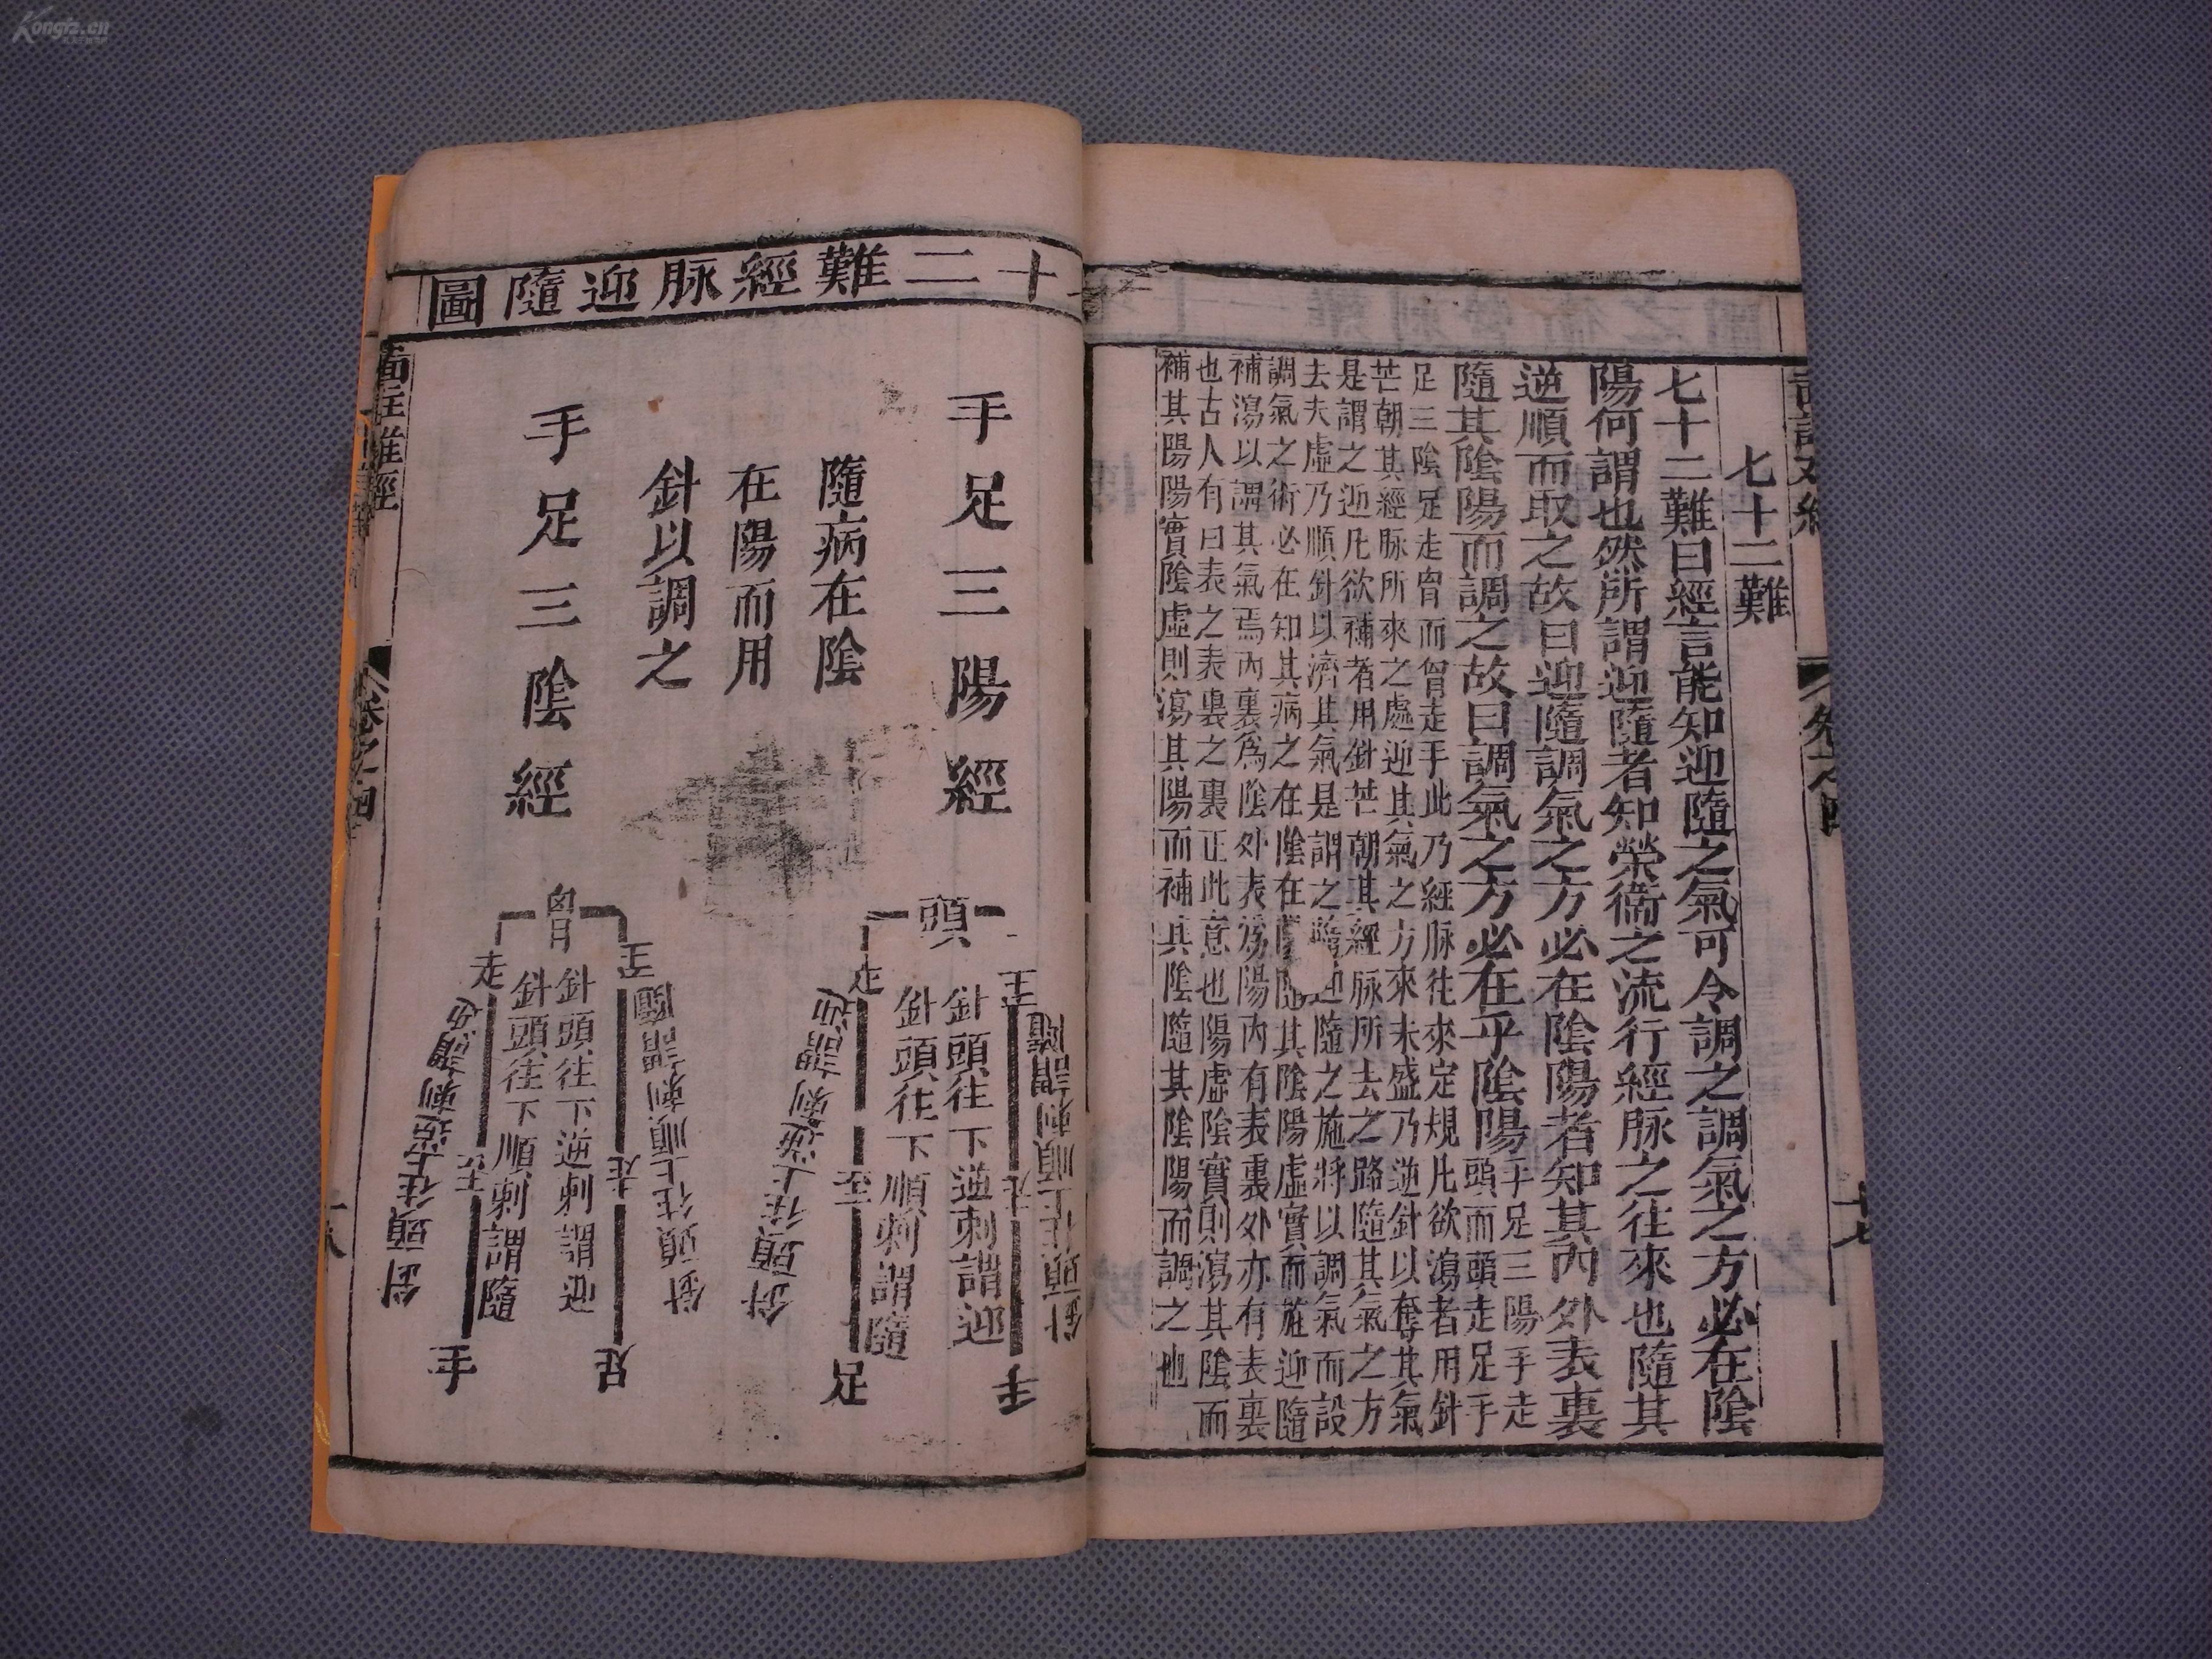 Kongfz.cn
七十二難
七十二難曰經言能知迎隨之氣可令調之調氣之方必在陰
陽何謂也然所謂迎隨者知榮衛之流行經脉之往來也隨其
逆順而取之故曰迎隨調氣之方必在陰陽者知其內外表裏
隨其陰陽而調之故曰調氣之方必在乎陰陽
手足三陽手走
頭而頭走足手
足三陰足走胷而胷走手此乃經脉往來定規凡欲瀉者用針
芒朝其經脉所來之處迎其氣之方來未盛乃逆針以奪其氣
是謂之迎凡欲補者用針芒朝其經脉所去之路隨其氣之方
去夫虛乃順針以濟其氣是謂之隨迎隨之施將以調氣而設
調氣之術必在知其病之在陰在陽隨其陰陽虛實而施迎隨
補瀉以調其氣焉內裏爲陰外表爲陽內有表裏外亦有表裏
也古人有曰表之表裏之裏正此意也陽虛陰實則瀉其陰而
補其陽陽實陰虛則瀉其陽而補其陰隨其陰陽而調之也
卷之四
十七
十二難經脉迎隨圖
手足三陽經
隨病在陰
在陽而用
針以調之
手足三陰經
頭
至
走
手
針頭往上順刺謂隨
針頭往下逆刺謂迎
針頭往下順刺謂隨
走
至
足
針頭往上逆刺謂迎
胷
至
走
足
針頭往上順刺謂隨
針頭往下逆刺謂迎
針頭往下順刺謂隨
走
至
手
針頭往上逆刺謂迎
圖註難經
卷之四
十八